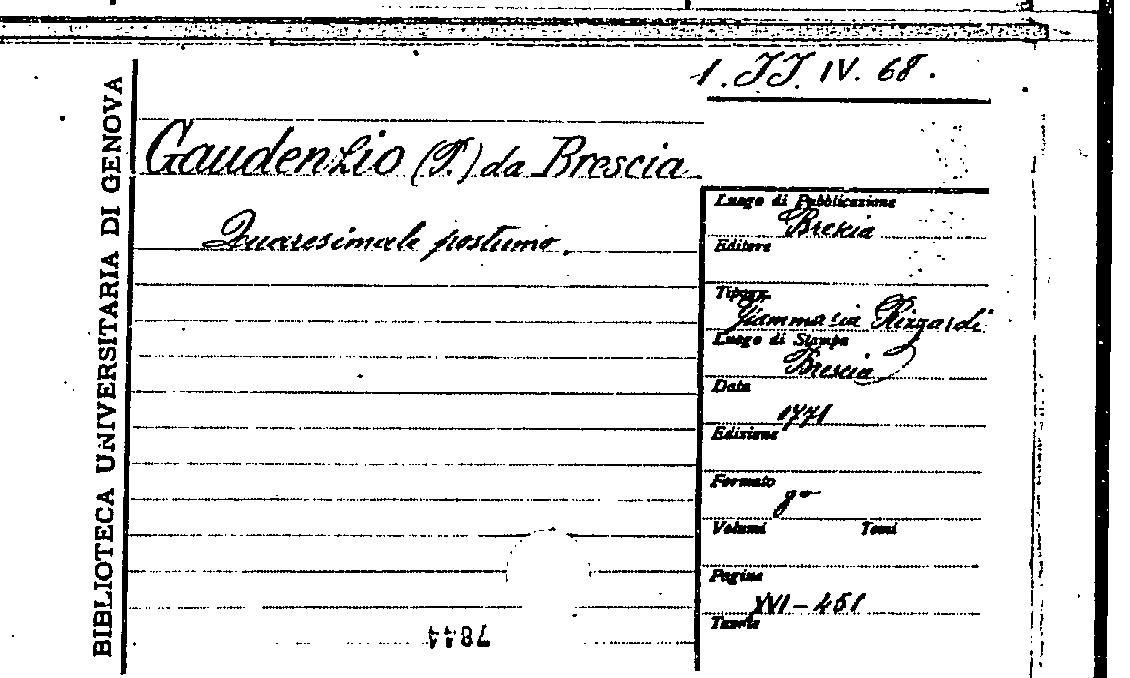 1. JJ. IV. 68.
BIBLIOTECA UNIVERSITARIA DI GENOVA
Gaudenzio (P.) da Brescia
Quaresimale postumo.
Luogo di Pubblicazione
Brescia
Editore
Tipogr.
Giammaria Rizzardi
Luogo di Stampa
Brescia
Data
1771
Edizione
Formato
8°
Volumi Tomi
Pagine
XVI-451
Tavole
7844